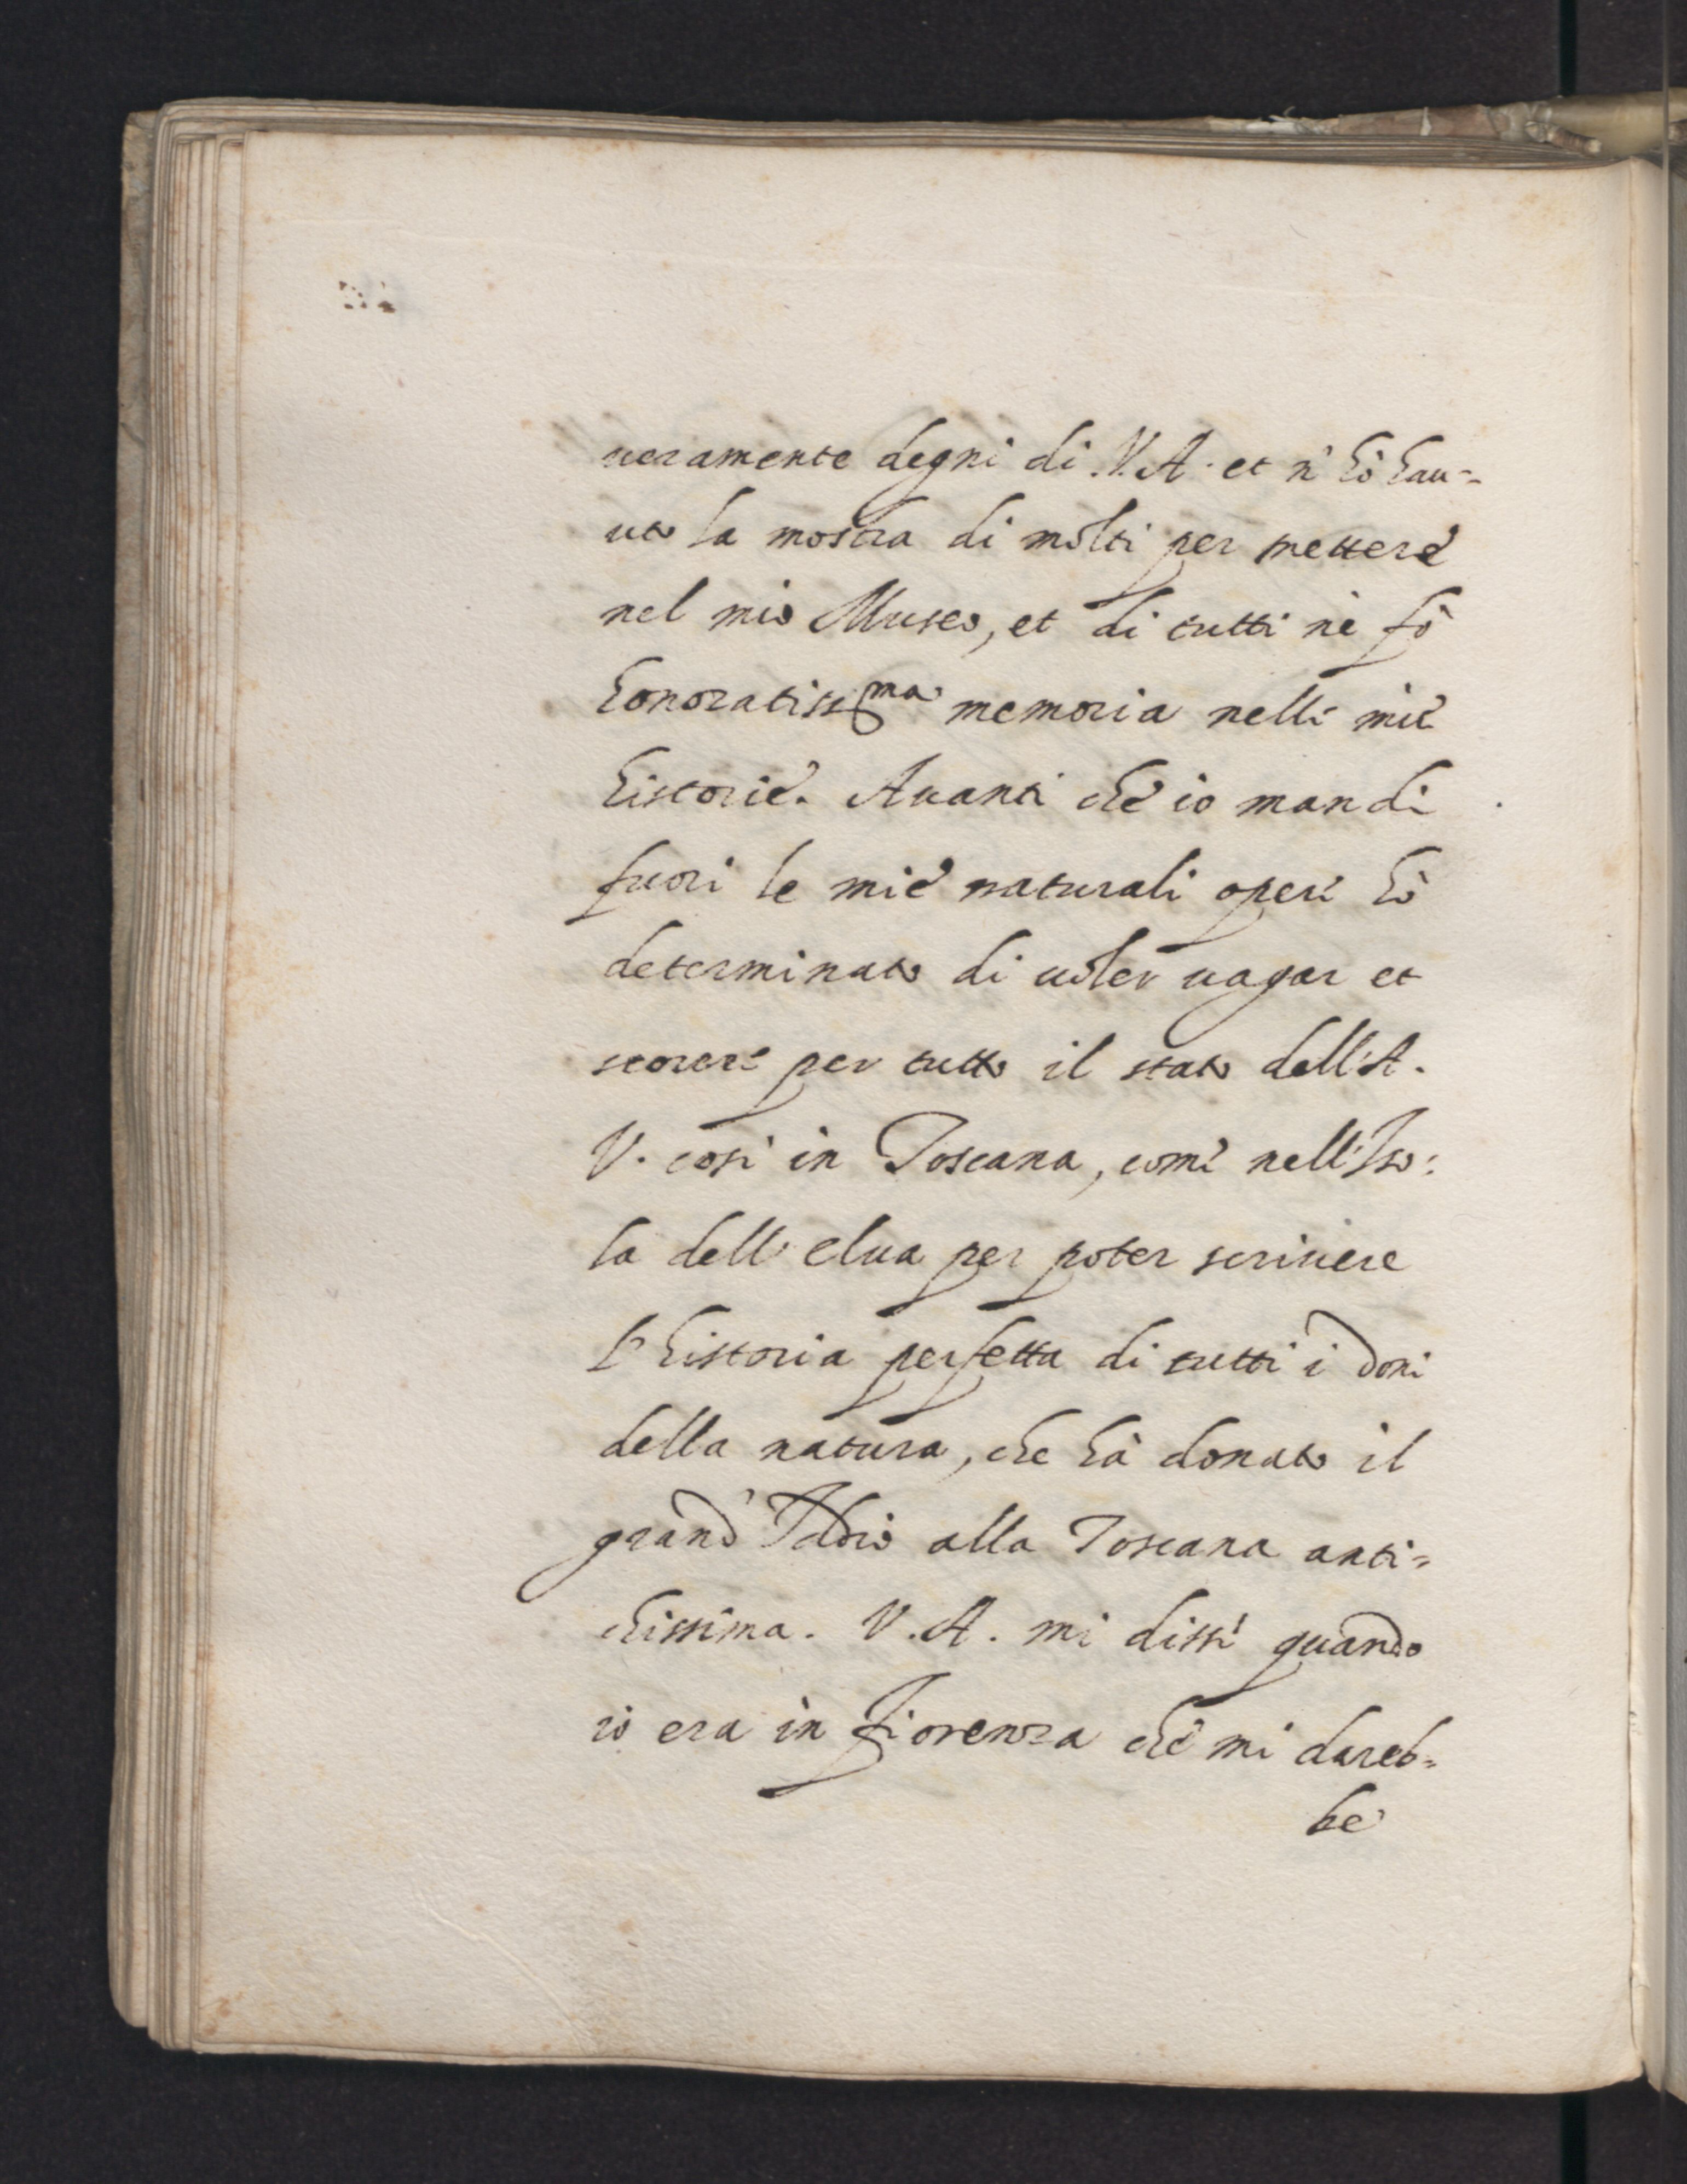 ueramente degni di .V.A. et n'hò hau=
uto la mostra di molti per mettere
nel mio Museo, et di tutti nè fò
honoratiss.ma memoria nelle mie
historie. Auanti che io mandi
fuori le mie naturali opere hò
determinato di uoler uagar et
scorere per tutto il stato dell'A.
V. cosi in Toscana, come nell'Iso:
la dell'elua per poter scriuere
l'historia perfetta di tutti i doni
della natura, che hà donato il
grand'Iddio alla Toscana anti=
chissima. V.A. mi disse quando
io era in Fiorenza che mi dareb=
be